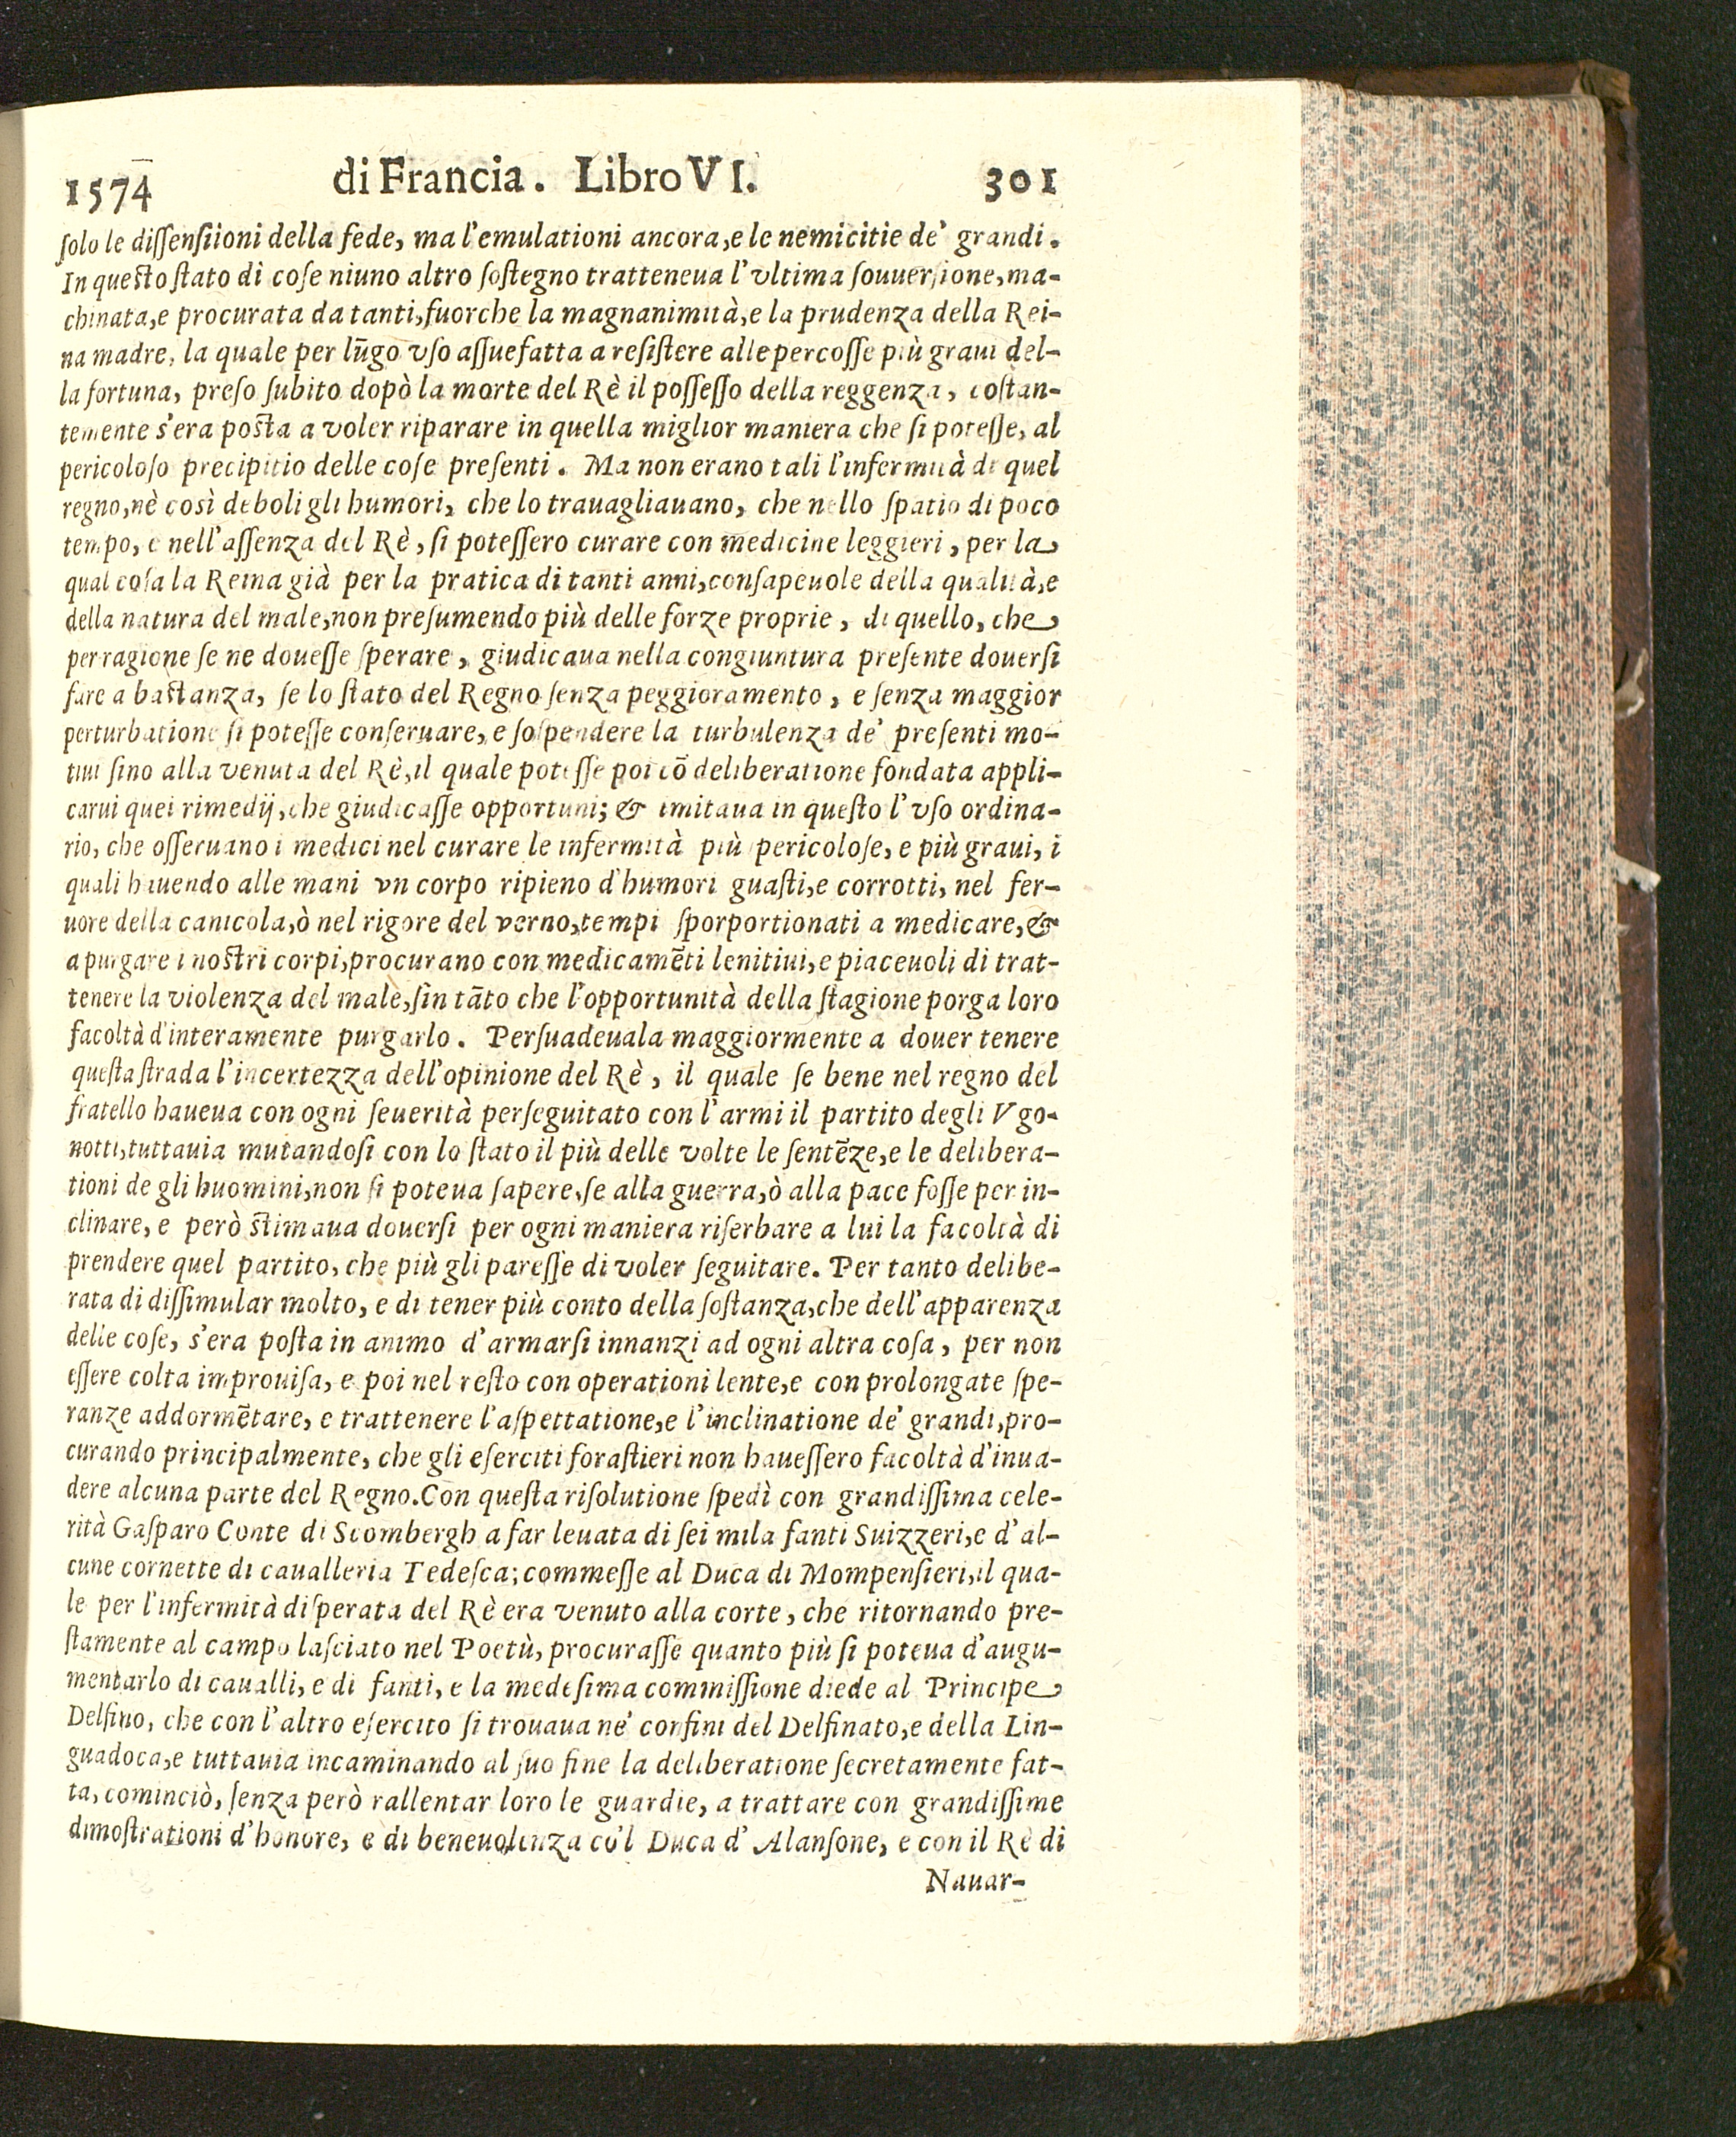 1574 di Francia. Libro VI. 301
ſolo le diſſenſiioni della fede, ma l'emulationi ancora, e le nemicitie de' grandi.
In queſto ſtato di coſe niuno altro ſoſtegno tratteneua l'vltima ſouuerſione, ma-
chinata, e procurata da tanti, fuorche la magnanimità, e la prudenza della Rei-
na madre, la quale per lũgo vſo aſſuefatta a reſiſtere alle percoſſe più graui del-
la fortuna, preſo ſubito dopò la morte del Rè il poſſeſſo della reggenza, coſtan-
temente s'era poſta a voler riparare in quella miglior maniera che ſi poteſſe, al
pericoloſo precipitio delle coſe preſenti. Ma non erano tali l'infermità di quel
regno, nè così deboli gli humori, che lo trauagliauano, che nello ſpatio di poco
tempo, e nell'aſſenza del Rè, ſi poteſſero curare con medicine leggieri, per la
qual coſa la Reina già per la pratica di tanti anni, conſapeuole della qualità, e
della natura del male, non preſumendo più delle forze proprie, di quello, che
per ragione ſe ne doueſſe ſperare, giudicaua nella congiuntura preſente douerſi
fare a baſtanza, ſe lo ſtato del Regno ſenza peggioramento, e ſenza maggior
perturbatione ſi poteſſe conſeruare, e ſoſpendere la turbulenza de' preſenti mo-
tiui ſino alla venuta del Rè, il quale poteſſe poi cõ deliberatione fondata appli-
carui quei rimedij, che giudicaſſe opportuni; & imitaua in queſto l'vſo ordina-
rio, che oſſeruano i medici nel curare le infermità più pericoloſe, e più graui, i
quali hauendo alle mani vn corpo ripieno d'humori guaſti, e corrotti, nel fer-
uore della canicola, ò nel rigore del verno, tempi ſporportionati a medicare, &
a purgare i noſtri corpi, procurano con medicamẽti lenitiui, e piaceuoli di trat-
tenere la violenza del male, ſin tãto che l'opportunità della ſtagione porga loro
facoltà d'interamente purgarlo. Perſuadeuala maggiormente a douer tenere
queſta ſtrada l'incertezza dell'opinione del Rè, il quale ſe bene nel regno del
fratello haueua con ogni ſeuerità perſeguitato con l'armi il partito degli Vgo-
notti, tuttauia mutandoſi con lo ſtato il più delle volte le ſentẽze, e le delibera-
tioni de gli huomini, non ſi poteua ſapere, ſe alla guerra, ò alla pace foſſe per in-
clinare, e però ſtimaua douerſi per ogni maniera riſerbare a lui la facoltà di
prendere quel partito, che più gli pareſſe di voler ſeguitare. Per tanto delibe-
rata di diſſimular molto, e di tener più conto della ſoſtanza, che dell'apparenza
delle coſe, s'era poſta in animo d'armarſi innanzi ad ogni altra coſa, per non
eſſere colta improuiſa, e poi nel reſto con operationi lente, e con prolongate ſpe-
ranze addormẽtare, e trattenere l'aſpettatione, e l'inclinatione de' grandi, pro-
curando principalmente, che gli eſerciti foraſtieri non haueſſero facoltà d'inua-
dere alcuna parte del Regno. Con queſta riſolutione ſpedì con grandiſſima cele-
rità Gaſparo Conte di Scombergh a far leuata di ſei mila fanti Suizzeri, e d'al-
cune cornette di caualleria Tedeſca; commeſſe al Duca di Mompenſieri, il qua-
le per l'infermità diſperata del Rè era venuto alla corte, che ritornando pre-
ſtamente al campo laſciato nel Poetù, procuraſſe quanto più ſi poteua d'augu-
mentarlo di caualli, e di fanti, e la medeſima commiſſione diede al Principe
Delfino, che con l'altro eſercito ſi trouaua ne' confini del Delfinato, e della Lin-
guadoca, e tuttauia incaminando al ſuo fine la deliberatione ſecretamente fat-
ta, cominciò, ſenza però rallentar loro le guardie, a trattare con grandiſſime
dimoſtrationi d'honore, e di beneuolenza co'l Duca d'Alanſone, e con il Rè di
Nauar-